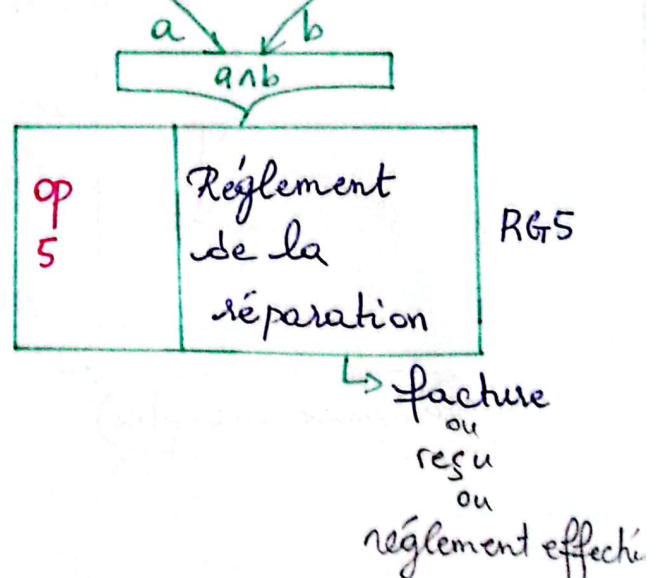 a b
a∧b
op
5
Réglement
de la
réparation
RG5
facture
ou
reçu
ou
réglement effecti